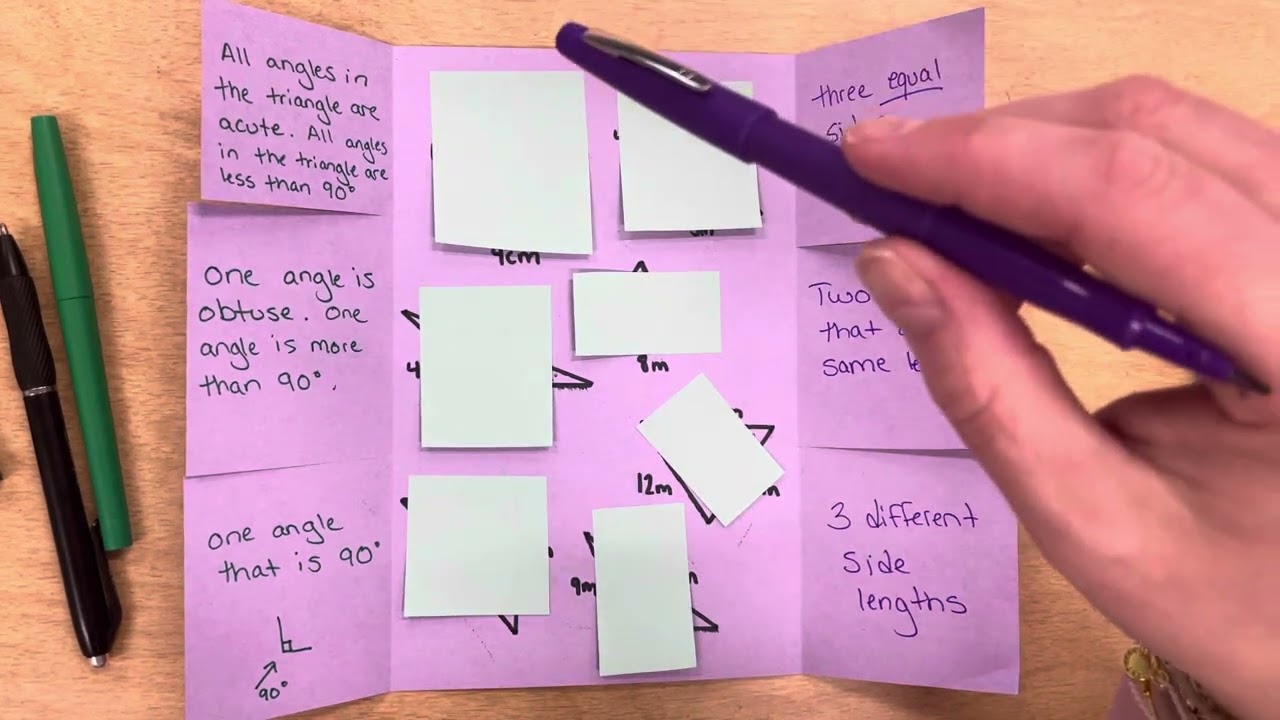 All angles in
the triangle are
acute. All angles
in the triangle are
less than 90°
One angle is
obtuse. One
angle is more
than 90°.
one angle
that is 90°
90°
9cm
8m
12m
9m
three equal
Two
that
same
3 different
side
lengths